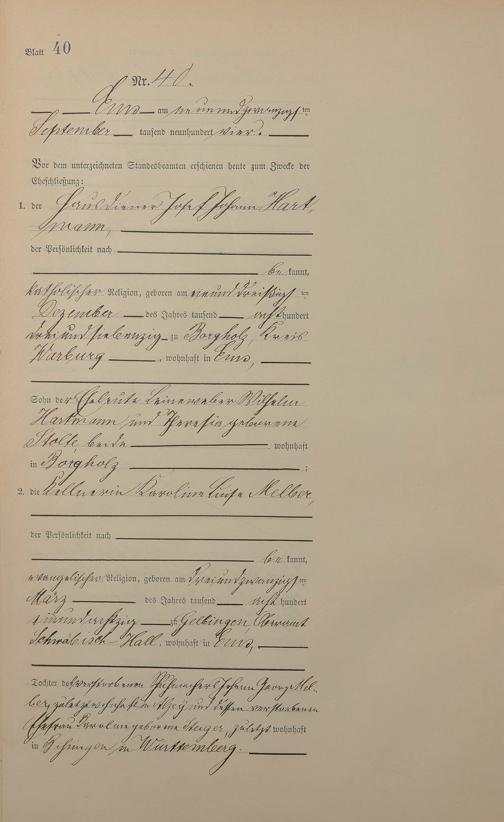 Blatt 40
Nr. 40.
Ems am neunundzwanzigsten
September tausend neunhundert vier.
Vor dem unterzeichneten Standesbeamten erschienen heute zum Zwecke der
Eheschließung:
1. der Hausdiener Josef Johann Hart,
mann,
der Persönlichkeit nach
be kannt,
katholischer Religion, geboren am
Dezember des Jahres tausend acht hundert
dreiundsiebenzig zu Borgholz, Kreis
Warburg, wohnhaft in Ems,
Sohn der Eheleute Leineweber Wilhelm
Hartmann und Theresia geborene
Stolte beide wohnhaft
in Borgholz ;
2. die Kellnerin Karoline Luise Melber,
der Persönlichkeit nach
be kannt,
evangelischer Religion, geboren am dreiundzwanzigsten
März des Jahres tausend acht hundert
einundachtzig zu Gelbingen, Oberamt
Schwäbisch-Hall, wohnhaft in Ems,
Tochter des verstorbenen Schuhmachers Johann Georg Mel-
ber, zuletzt wohnhaft in und dessen verstorbenen
Ehefrau Karoline geborene Steiger, zuletzt wohnhaft
in in Württemberg.